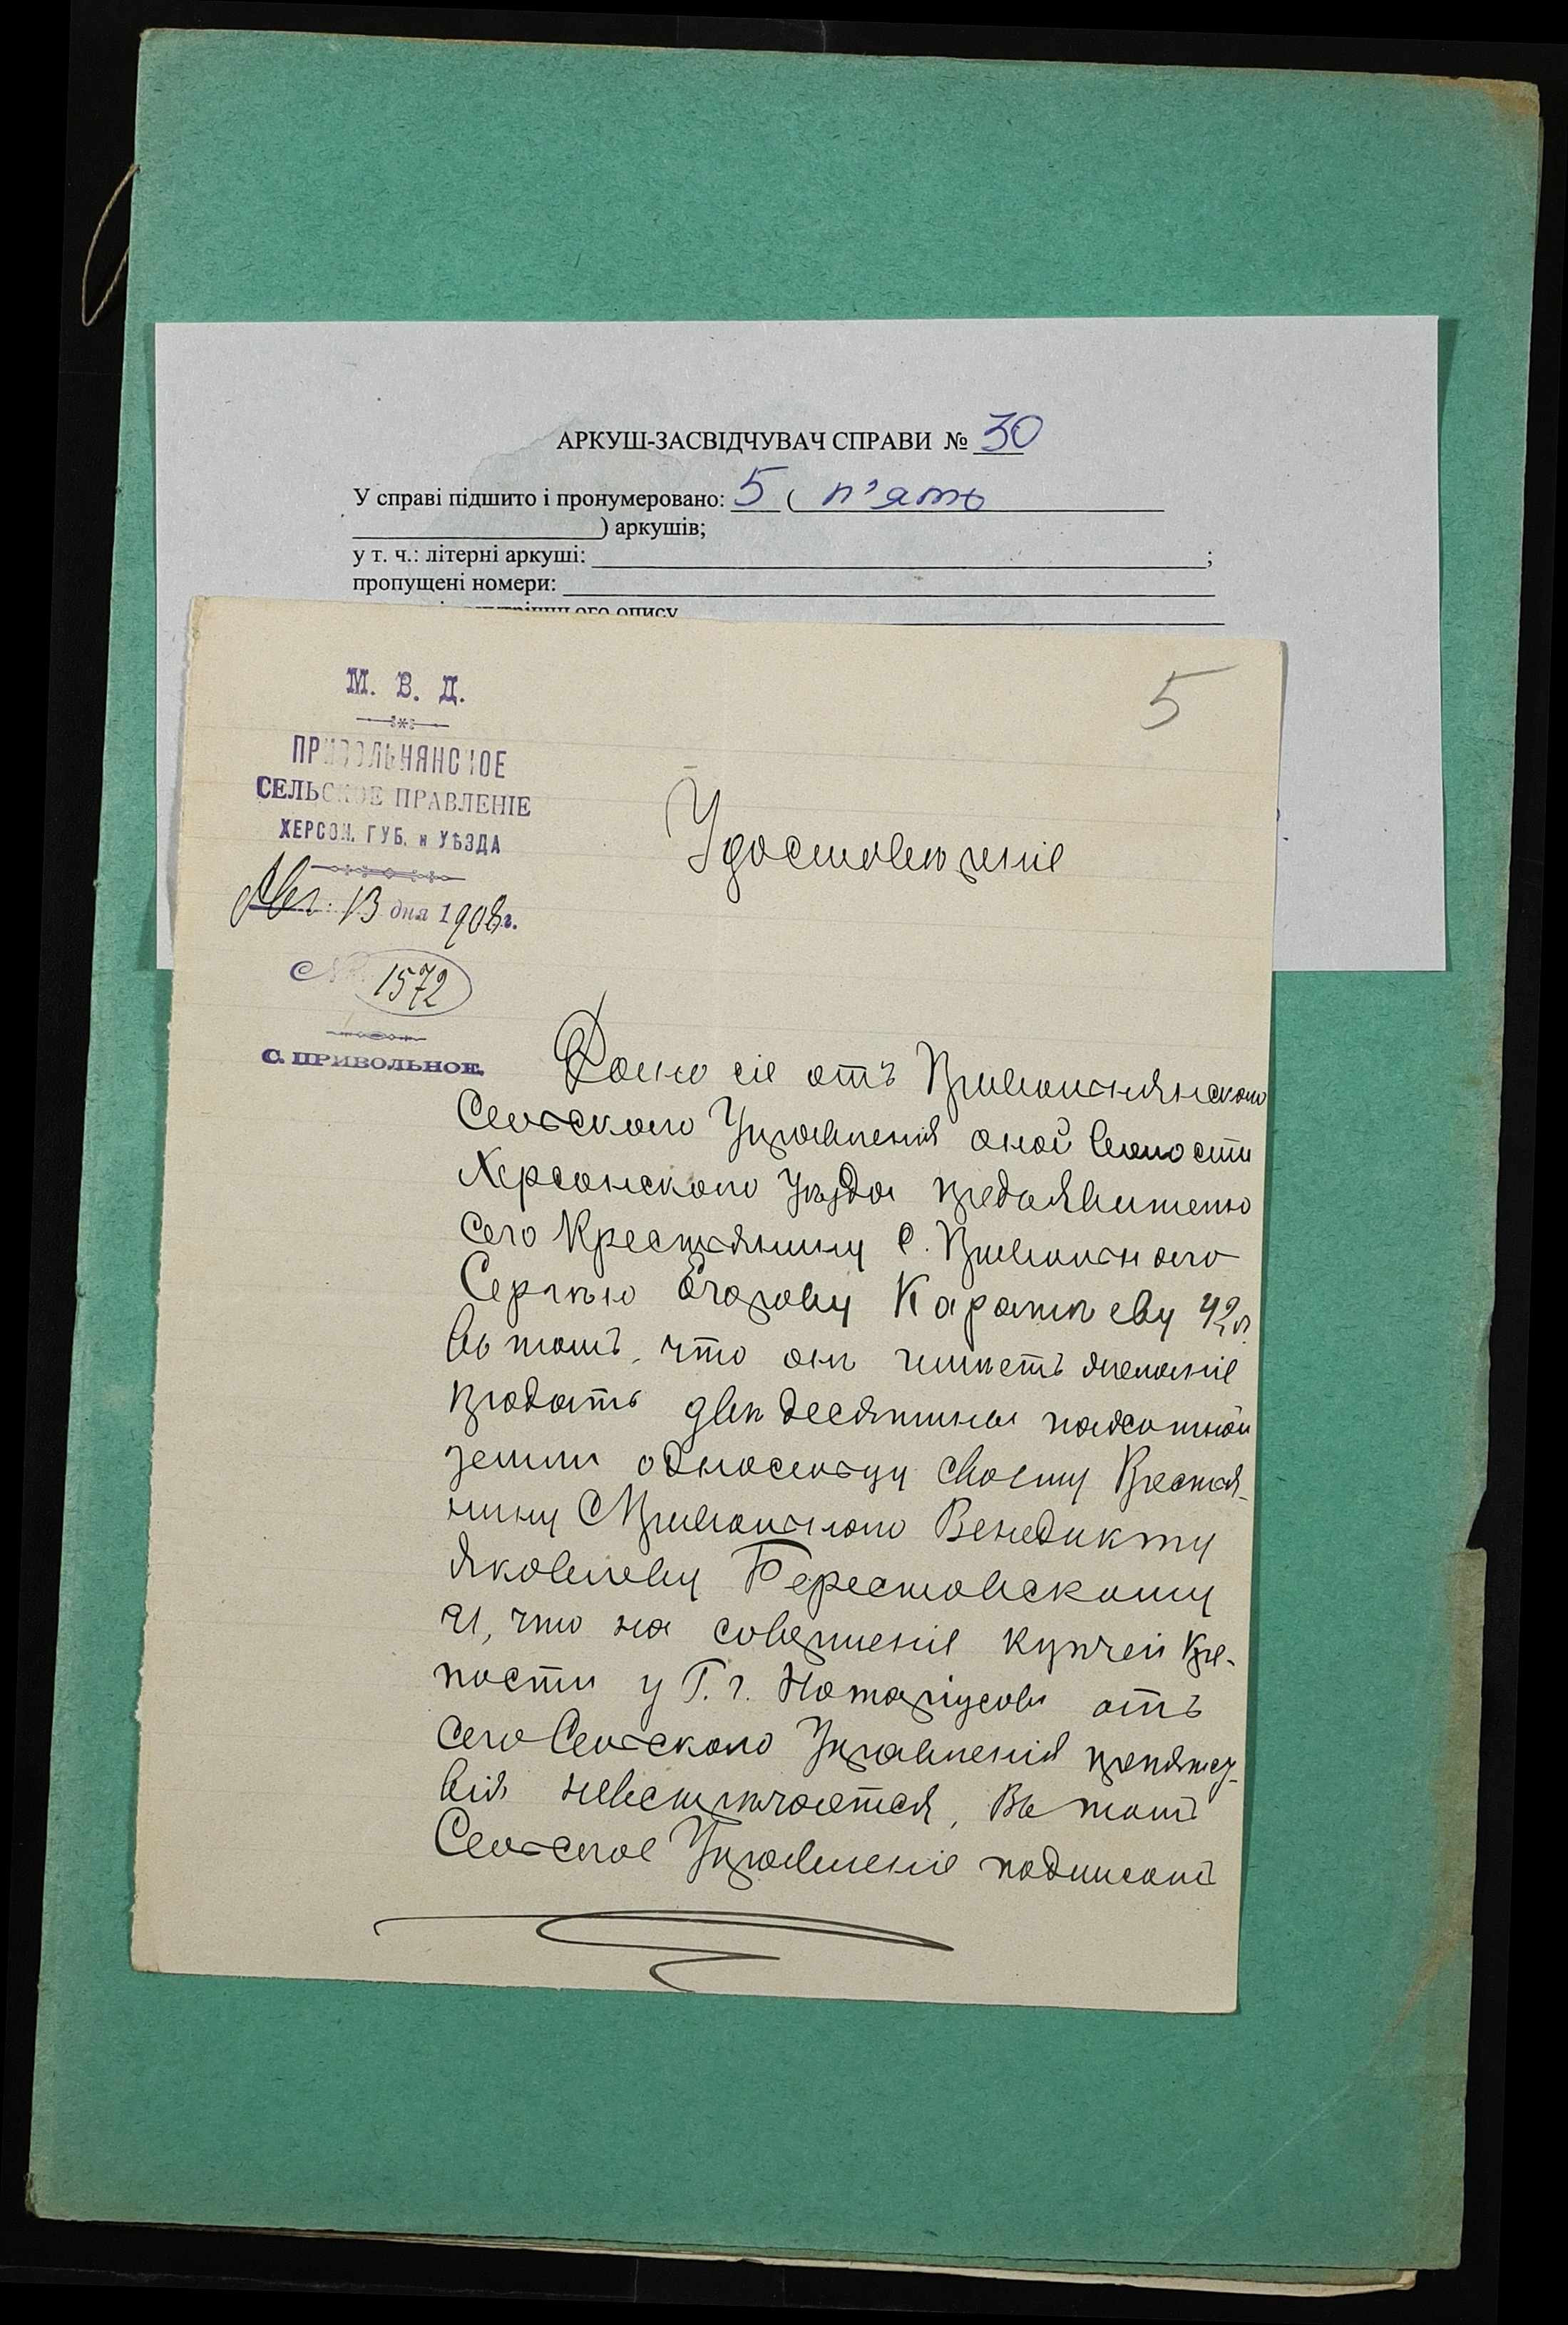 АРКУШ-ЗАСВІДЧУВАЧ СПРАВИ № 30
У справі підшито і пронумеровано: 5 ( п'ять
) аркушів;
у т. ч.: літерні аркуші: ;
пропущені номери:
опису
5
М. В. Д.
ПРИВОЛЬНЯНСКОЕ
СЕЛЬСКОЕ ПРАВЛЕНІЕ
ХЕРСОН. ГУБ. и УѢЗДА
Авг. 13 дня 1908 г.
№ 1572
С. ПРИВОЛЬНОЕ.
Удостоверение
Дано сіе отъ Привольнянскаго
Сельскаго Управленія оной Волости
Херсонскаго Уѣзда предъявителю
сего Крестьянину С. Привольнаго
Сергѣю Егорову Каратѣеву 42 л.
въ томъ, что онъ имѣетъ желаніе
продать двѣ десятины
земли односельцу своему Крестья-
нину С Привольнаго Венедикту
Яковлеву Берестовскому
и, что на совершеніе купчей Кре-
пости у Г. г. Нотаріусовъ отъ
сего Сельскаго Управленія препятст-
вія невстречается, Въ томъ
Сельское Управленіе подписомъ